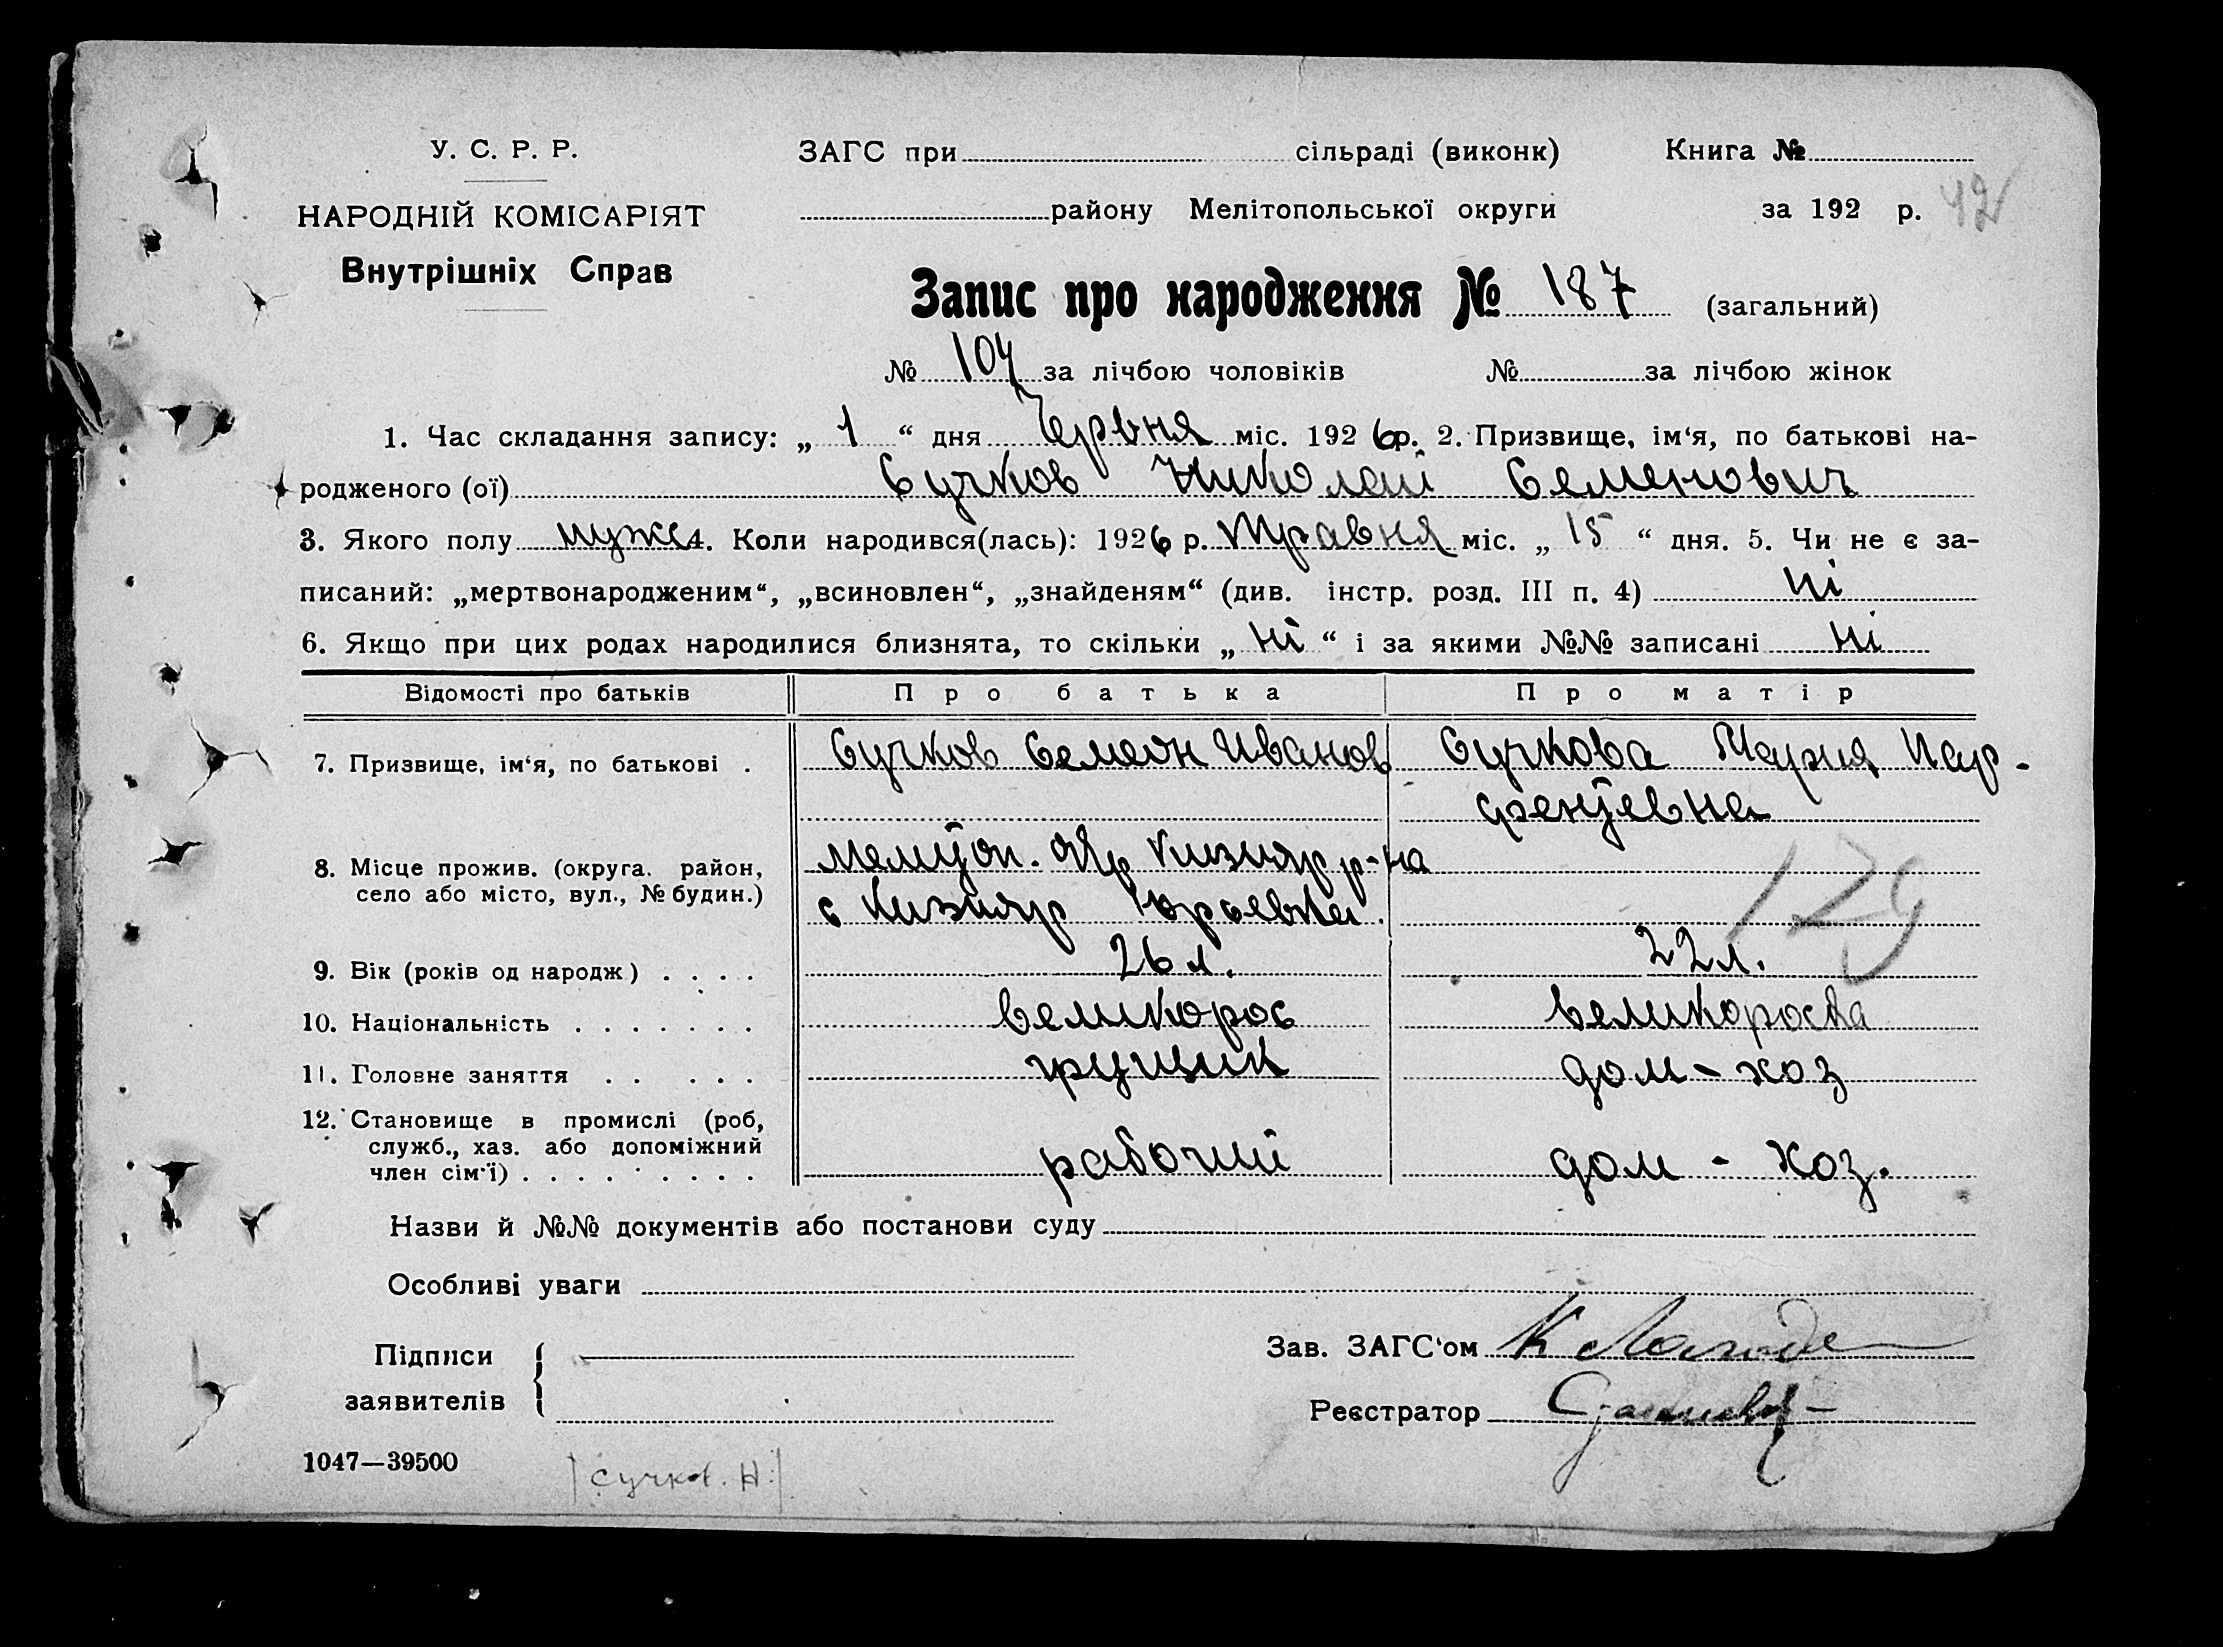 У. С. Р. Р.
НАРОДНІЙ КОМІСАРІЯТ
Внутрішніх Справ
ЗАГС при сільраді (виконк) Книга №
району Мелітопольської округи за 192 р. 42
Запис про народження № 187 (загальний)
№ 104 за лічбою чоловіків № за лічбою жінок
1. Час складання запису: „ 1 “ дня Червня міс. 1926 р. 2. Призвище, ім‘я, по батькові на-
родженого (ої) Сучков Николай Семенович
3. Якого полу муж. 4. Коли народився(лась): 1926 р. Травня міс. „ 15 “ дня. 5. Чи не є за-
писаний: „мертвонародженим“, „всиновлен“, „знайденям“ (див. інстр. розд. III п. 4) ні
6. Якщо при цих родах народилися близнята, то скільки „ ні “ і за якими №№ записані ні
Відомості про батьків Про батька Про матір
7. Призвище, ім‘я, по батькові . Сучков Семеон Иванов Сучкова Мария Пар-
фентьевна
8. Місце прожив. (округа. район, Меліт. окр Кизияр р-на
село або місто, вул., № будин.) с Кизияр
129
9. Вік (років од народж) . . . . 26 л. 22 л.
10. Національність . . . . . . . великорос великороска
11. Головне заняття . . . . . грущик дом-хоз
12. Становище в промислі (роб,
служб., хаз. або допоміжний
член сім‘ї) . . . . . . . . . рабочий дом - хоз.
Назви й №№ документів або постанови суду
Особливі уваги
Підписи
заявителів
Зав. ЗАГС‘ом К
Реєстратор
1047—39500
Сучков. Н.